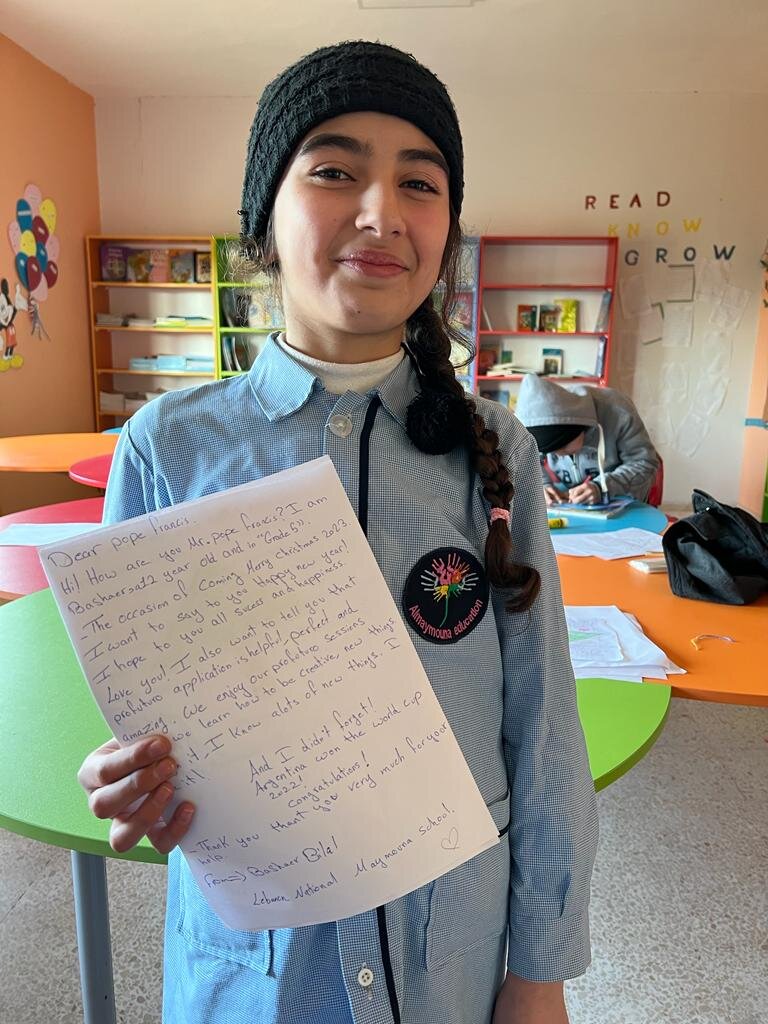 READ
KNOW
GROW
Dear pope francis.
Hi! How are you Mr. pope francis? I am
Bashaer, a12 year old and in "Grade 6".
- The occasion of coming Merry christmas 2023.
I want to say to you Happy new year!
I hope to you all sucess and happiness.
Love you! I also want to tell you that
profuturo application is helpful, perfect and
amazing. We enjoy our profuturo sessions
we learn how to be creative, new things.
it, I know alots of new things. I
it!
And I didn't forget!
Argentina won the world cup
2022!
congratulations!
- Thank you thank you very much for your
help.
from=> Bashaer Bilal
Lebanon National Maymouna school.
Almaymouna education